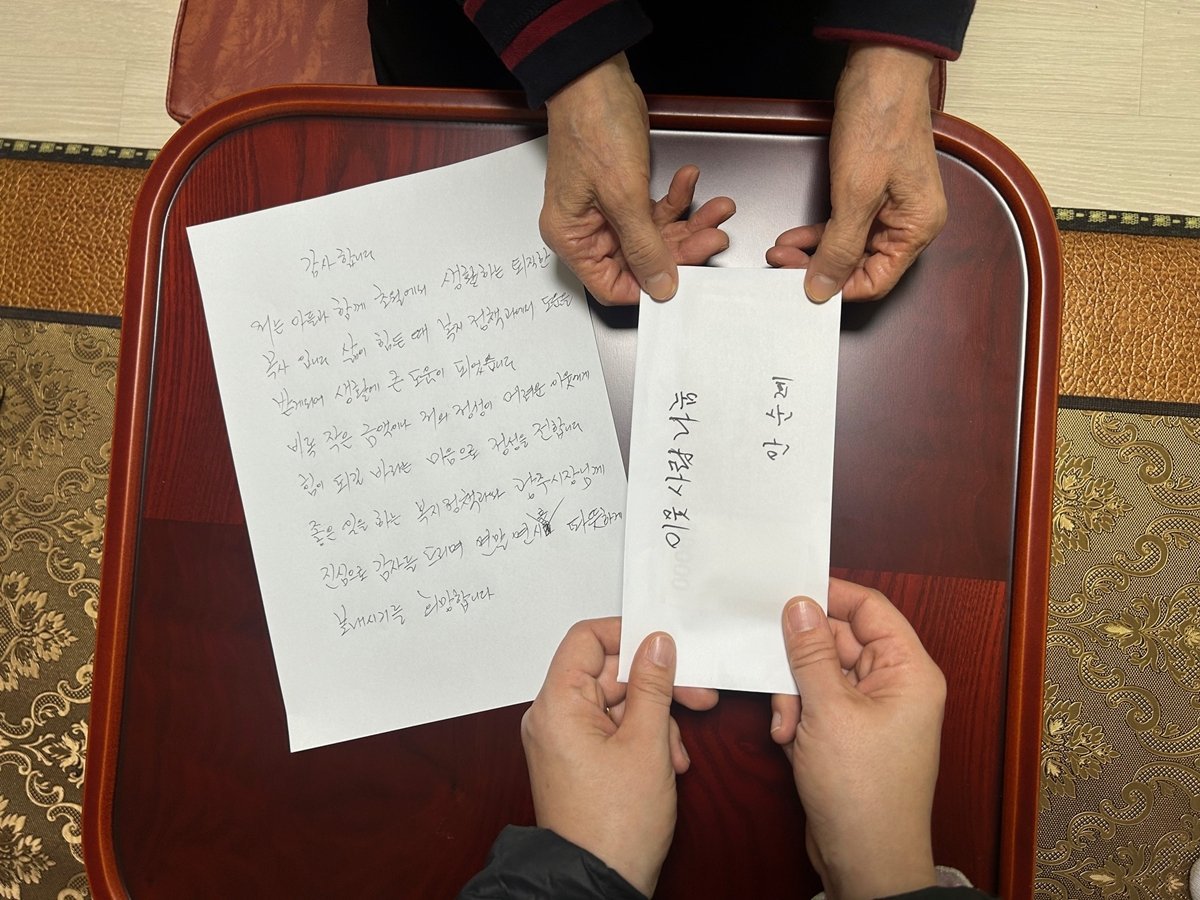 감사합니다
저는 아들과 함께 초월에서 생활하는 퇴직한
목사 입니다 삶이 힘든 때 복지 정책과에서 도움을
받게되며 생활에 큰 도움이 되었습니다
비록 작은 금액이나 저의 정성이 어려운 이웃에게
힘이 되길 바라는 마음으로 정성을 전합니다
좋은 일을 하는 복지정책과와 광주시장님께
진심으로 감사를 드리며 연말 연시를 따뜻하게
보내시기를 희망합니다